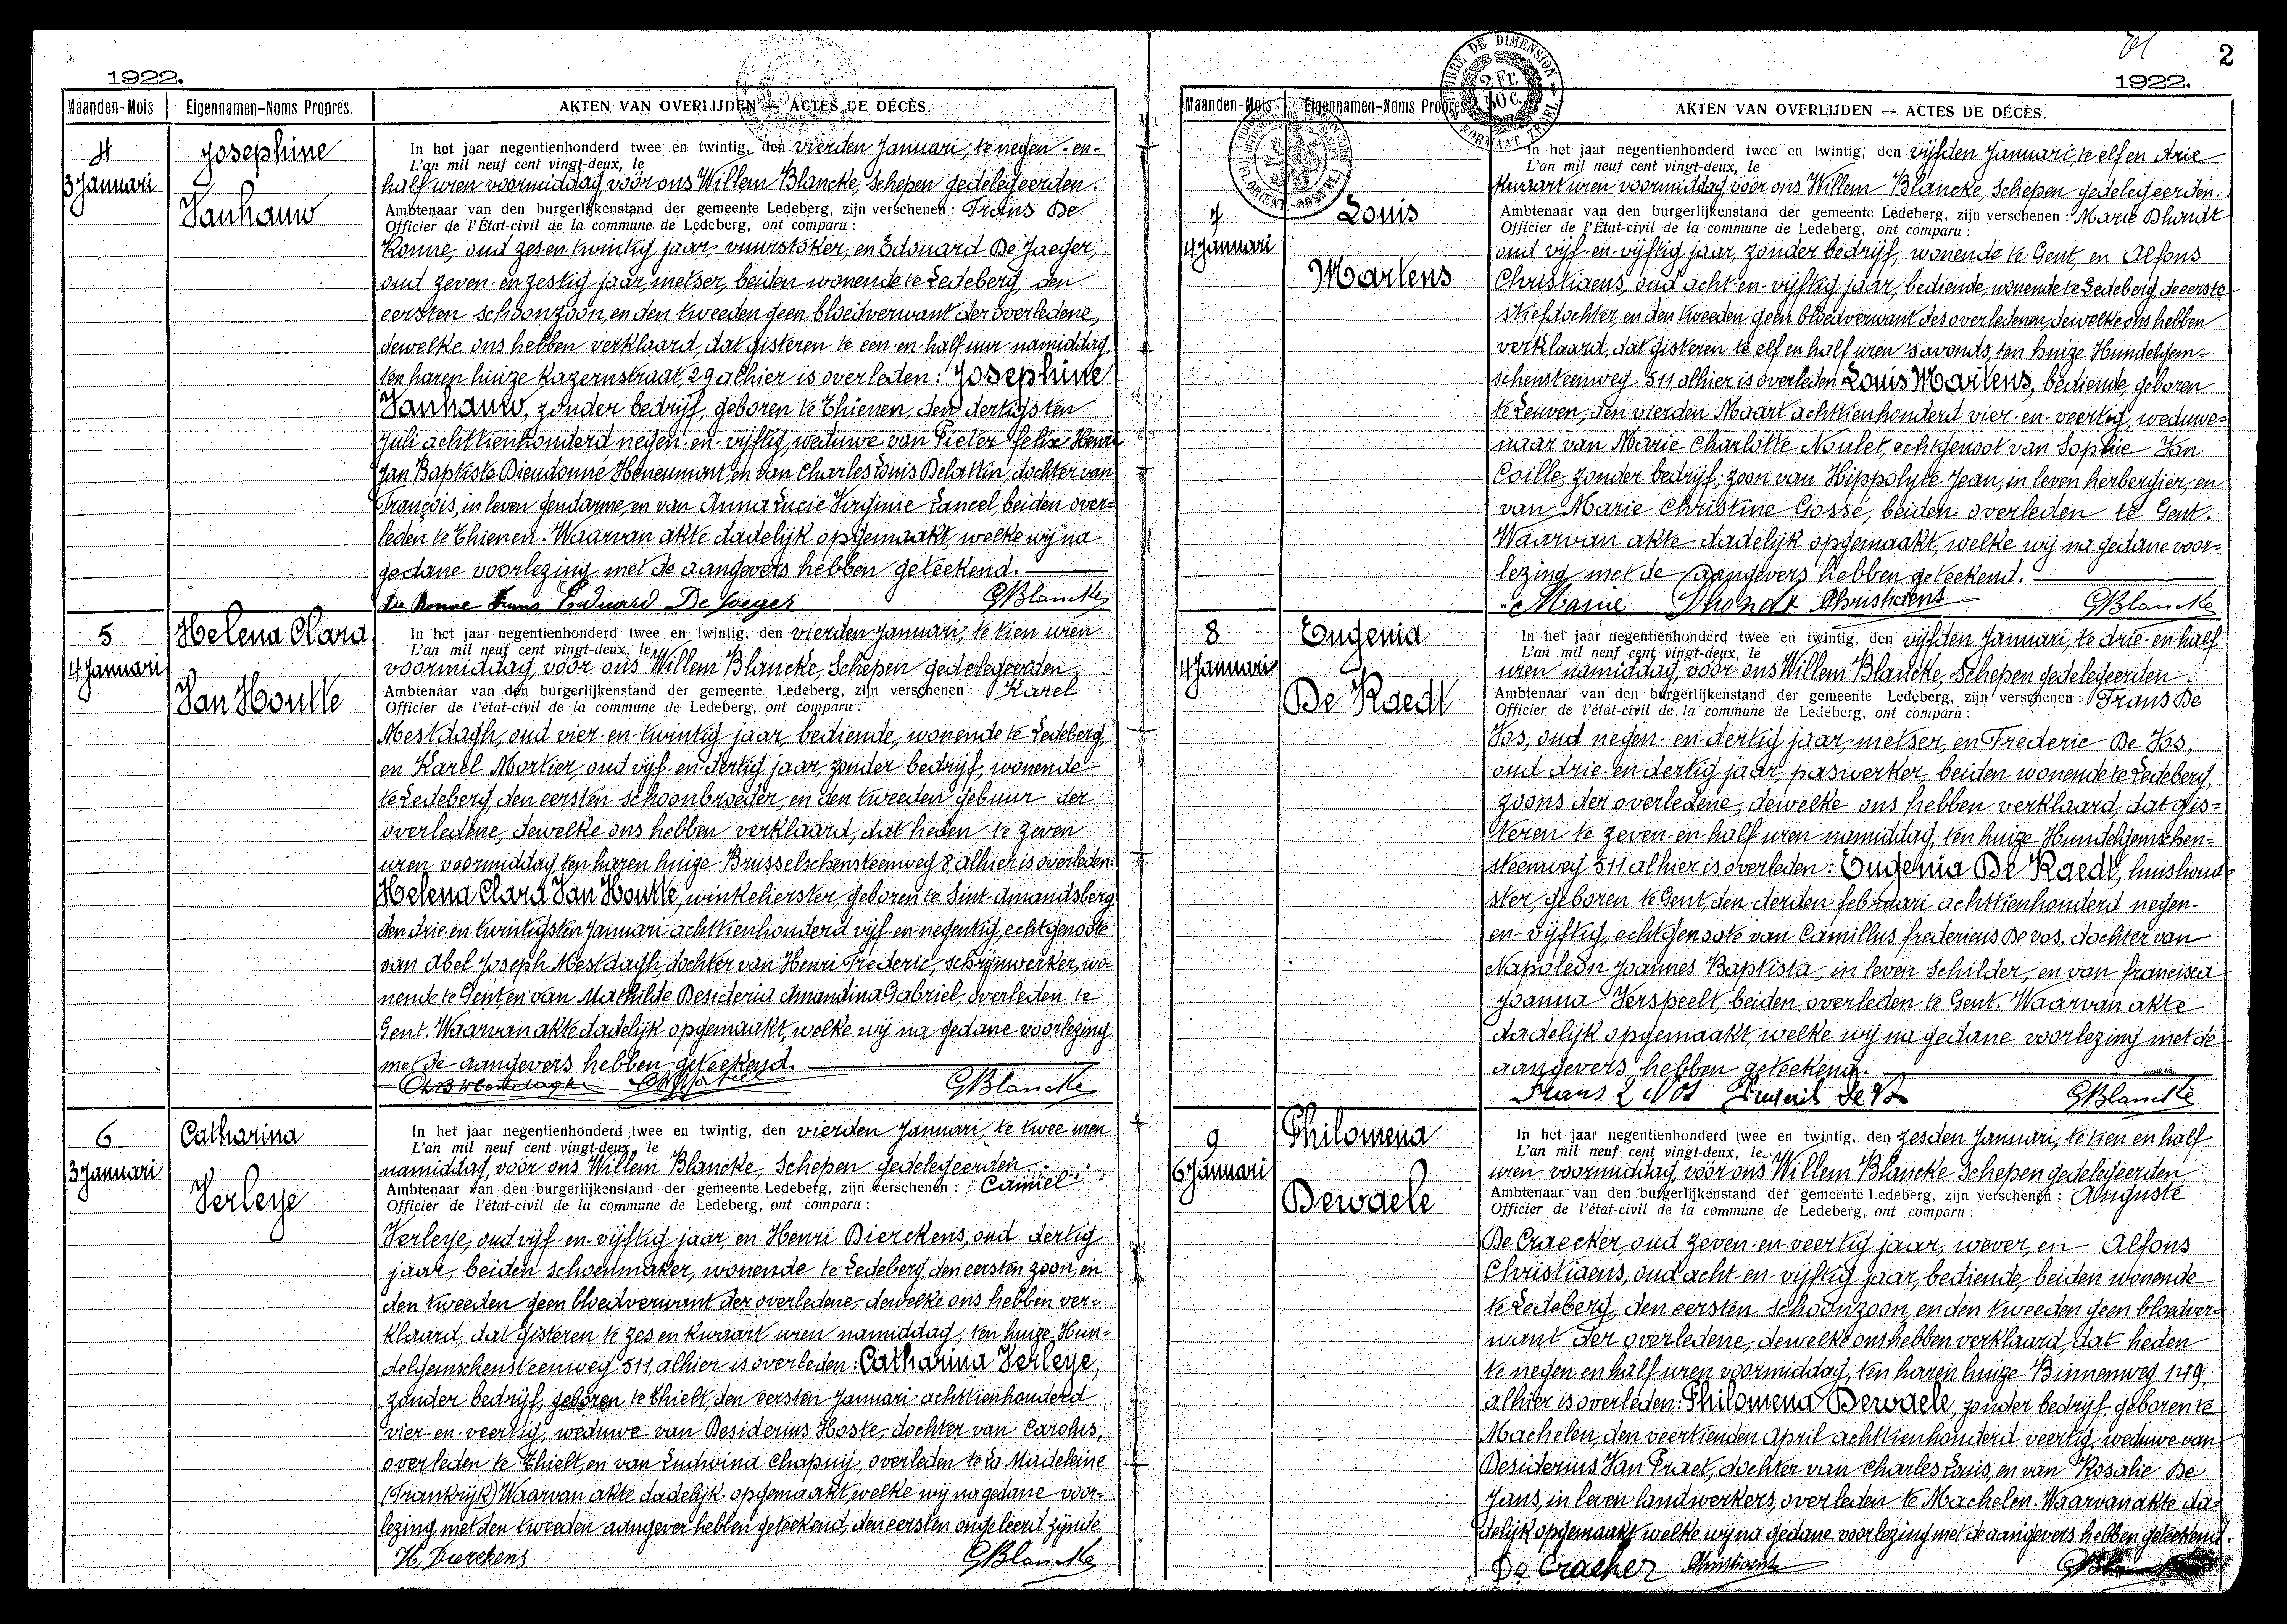 1922.
Maanden-Mois
Eigennamen-Noms Propres.
AKTEN VAN OVERLIJDEN — ACTES DE DÉCÈS.
4
3 Januari
Josephine
Vanhauw
In het jaar negentienhonderd twee en twintig, den vierden Januari, te negen-en-
L'an mil neuf cent vingt-deux, le
half uren voormiddag vóór ons Willem Blancke, Schepen gedelegeerden.
Ambtenaar van den burgerlijkenstand der gemeente Ledeberg, zijn verschenen : Frans De
Officier de l'État-civil de la commune de Ledeberg, ont comparu :
Ronne, oud zes en twintig jaar, vuurstoker, en Edouard De Jaeger,
oud zeven-en zestig jaar, metser, beiden wonende te Ledeberg, den
eersten schoonzoon, en den tweeden geen bloedverwant der overledene,
dewelke ons hebben verklaard, dat gisteren te een-en-half uur namiddag,
ten haren huize Kazernstraat, 29 alhier is overleden : Josephine
Vanhauw, zonder bedrijf, geboren te Thienen, den dertigsten
Juli achttienhonderd negen-en-vijftig, weduwe van Pieter felix Henri
Jan Baptiste Dieudonné Henenmont, en van Charles Louis Delattin, dochter van
François, in leven gendarme, en van Anna Lucie Virginie Lancel, beiden over=
leden te Thienen. Waarvan akte dadelijk opgemaakt, welke wij na
gedane voorlezing met de aangevers hebben geteekend.
De Ronne Frans Eduard De Jaeger GBlancke
5
4 Januari
Helena Clara
Van Houtte
In het jaar negentienhonderd twee en twintig, den vierden Januari, te tien uren
L'an mil neuf cent vingt-deux, le
voormiddag, vóór ons Willem Blancke, Schepen gedelegeerden
Ambtenaar van den burgerlijkenstand der gemeente Ledeberg, zijn verschenen : Karel
Officier de l'état-civil de la commune de Ledeberg, ont comparu :
Mestdagh, oud vier-en-twintig jaar, bediende, wonende te Ledeberg,
en Karel Mortier, oud vijf-en-dertig jaar, zonder bedrijf, wonende
te Ledeberg, den eersten schoonbroeder, en den tweeden gebuur der
overledene, dewelke ons hebben verklaard, dat heden te zeven
uren voormiddag, ten haren huize Brusselschensteenweg 8 alhier is overleden:
Helena Clara Van Houtte, winkelierster, geboren te Sint-Amandsberg
den drie-en-twintigsten Januari achttienhonderd vijf-en-negentig, echtgenoote
van Abel Joseph Mestdagh, dochter van Henri Frederic, schrijnwerker, wo=
nende te Gent en van Mathilde Desideria Amandina Gabriel, overleden te
Gent. Waarvan akte dadelijk opgemaakt, welke wij na gedane voorlezing
met de aangevers hebben geteekend.
GBlancke
6
3 Januari
Catharina
Verleye
In het jaar negentienhonderd twee en twintig, den vierden Januari, te twee uren
L'an mil neuf cent vingt-deux, le
namiddag, vóór ons Willem Blancke, Schepen gedelegeerden
Ambtenaar van den burgerlijkenstand der gemeente Ledeberg, zijn verschenen : Camiel
Officier de l'état-civil de la commune de Ledeberg, ont comparu :
Verleye, oud vijf-en-vijftig jaar, en Henri Dierckens, oud dertig
jaar, beiden schoenmaker, wonende te Ledeberg, den eersten zoon, en
den tweeden geen bloedverwant der overledene, dewelke ons hebben ver=
klaard, dat gisteren te zes en kwaart uren namiddag, ten huize Hun=
delgemschensteenweg 511, alhier is overleden : Catharina Verleye,
zonder bedrijf, geboren te Thielt, den eersten Januari achttienhonderd
vier-en-veertig, weduwe van Desiderius Hoste, dochter van Carolus,
overleden te Thielt, en van Ludwina Chapuij, overleden te La Madeleine
(Frankrijk) Waarvan akte dadelijk opgemaakt, welke wij na gedane voor=
lezing met den tweeden aangever hebben geteekend, den eersten ongeleerd zijnde
H. Dierckens GBlancke
2
1922.
TIMBRE DE DIMENSION
2 Fr.
40 c.
FORMAAT ZEGEL
Maanden-Mois
Eigennamen-Noms Propres
AKTEN VAN OVERLIJDEN — ACTES DE DÉCÈS.
7
4 Januari
Louis
Martens
In het jaar negentienhonderd twee en twintig, den vijfden Januari, te elf en drie
L'an mil neuf cent vingt-deux, le
kwaart uren voormiddag vóór ons Willem Blancke, Schepen gedelegeerden.
Ambtenaar van den burgerlijkenstand der gemeente Ledeberg, zijn verschenen : Marie Dhondt
Officier de l'État-civil de la commune de Ledeberg, ont comparu :
oud vijf-en-vijftig jaar, zonder bedrijf, wonende te Gent, en Alfons
Christiaens, oud acht-en-vijftig jaar, bediende, wonende te Ledeberg, de eerste
stiefdochter, en den tweeden geen bloedverwant des overledenen, dewelke ons hebben
verklaard, dat gisteren te elf en half uren 's avonds, ten huize Hundelgem=
schensteenweg 511 alhier is overleden Louis Martens, bediende, geboren
te Leuven, den vierden Maart achttienhonderd vier-en-veertig, weduwe=
naar van Marie Charlotte Noulet, echtgenoot van Sophie Van
Coille, zonder bedrijf, zoon van Hippolyte Jean, in leven herbergier, en
van Marie Christine Gossé, beiden overleden te Gent.
Waarvan akte dadelijk opgemaakt, welke wij na gedane voor=
lezing met de aangevers hebben geteekend.
Marie Dhondt Christiaens GBlancke
8
4 Januari
Eugenia
De Raedt
In het jaar negentienhonderd twee en twintig, den vijfden Januari, te drie-en-half
L'an mil neuf cent vingt-deux, le
uren namiddag, vóór ons Willem Blancke, Schepen gedelegeerden
Ambtenaar van den burgerlijkenstand der gemeente Ledeberg, zijn verschenen : Frans De
Officier de l'état-civil de la commune de Ledeberg, ont comparu :
Vos, oud negen-en-dertig jaar, metser, en Frederic De Vos,
oud drie-en-dertig jaar, paswerker, beiden wonende te Ledeberg,
zoons der overledene, dewelke ons hebben verklaard, dat gis=
teren te zeven-en-half uren namiddag, ten huize Hundelgemschen=
steenweg 511, alhier is overleden : Eugenia De Raedt, huishoud=
ster, geboren te Gent, den derden februari achttienhonderd negen-
en-vijftig, echtgenoote van Camillus fredericus De vos, dochter van
Napoleon Joannes Baptista, in leven schilder, en van francisca
Joanna Verspeelt, beiden overleden te Gent. Waarvan akte
dadelijk opgemaakt, welke wij na gedane voorlezing met de
aangevers hebben geteekend.
Frans De Vos Frederik De Vos GBlancke
9
6 Januari
Philomena
Dewaele
In het jaar negentienhonderd twee en twintig, den zesden Januari, te tien en half
L'an mil neuf cent vingt-deux, le
uren voormiddag, vóór ons Willem Blancke Schepen gedelegeerden
Ambtenaar van den burgerlijkenstand der gemeente Ledeberg, zijn verschenen : Auguste
Officier de l'état-civil de la commune de Ledeberg, ont comparu :
De Craecker, oud zeven-en-veertig jaar, wever, en Alfons
Christiaens, oud acht-en-vijftig jaar, bediende, beiden wonende
te Ledeberg, den eersten schoonzoon, en den tweeden geen bloedver=
want der overledene, dewelke ons hebben verklaard, dat heden
te negen en half uren voormiddag, ten haren huize Binnenweg 149,
alhier is overleden: Philomena Dewaele, zonder bedrijf, geboren te
Machelen, den veertienden April achttienhonderd veertig, weduwe van
Desiderius Van Praet, dochter van Charles Louis, en van Rosalie De
Jans, in leven landwerkers, overleden te Machelen. Waarvan akte da=
delijk opgemaakt welke wij na gedane voorlezing met de aangevers hebben geteekend.
De Craeker Christiaens GBlancke